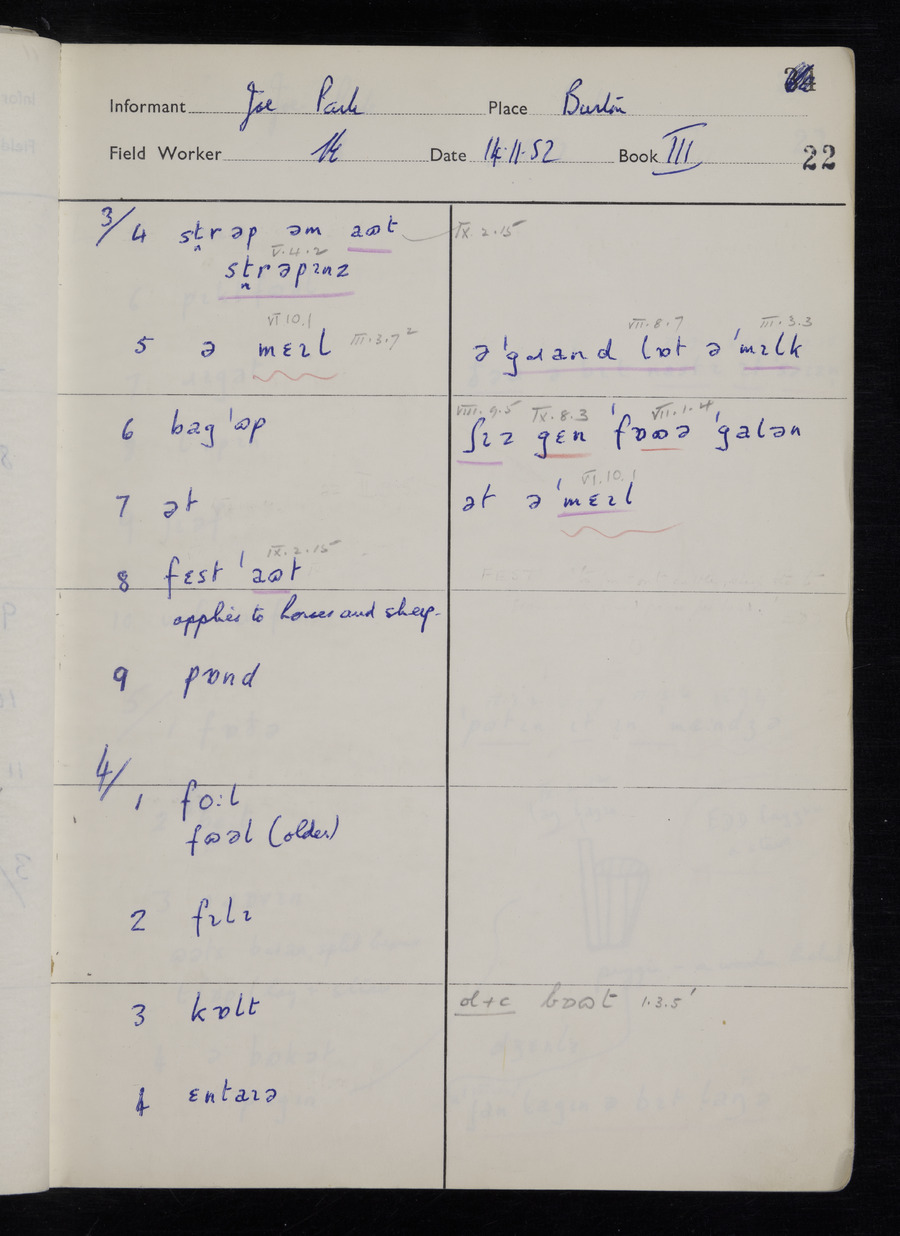 Informant Joe Park Place Burton
Field Worker Date 14.11.52 Book III 22
3/ 4 st̪rəp əm aɷt IX.2.15
V.4.2
st̪rəpɪnz
VI 10.1 VII.8.7 III.3.3
5 ə mɛɪl III.3.7² ə ˈgɹand lɒt ə ˈmɪlk
VIII.9.5 IX.8.3 VII.1.4
6 bag ˈɷp ʃɪz gɛn ˈfɒɷə ˈgalən
VI.10.1
7 ət ət ə ˈmɛɪl
IX.2.15
8 fɛst ˈaɷt
applies to horses and sheep.
9 pɒnd
4/
1 fo:l
fɷəl (older)
2 fɪlɪ
3 kɒlt d+c bɒɷt 1.3.5'
4 ɛntaɪə